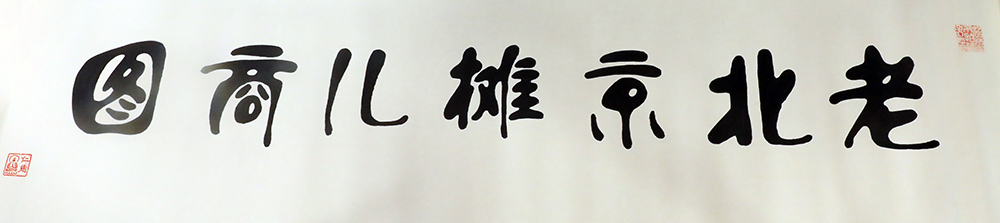 老北京摊儿商图